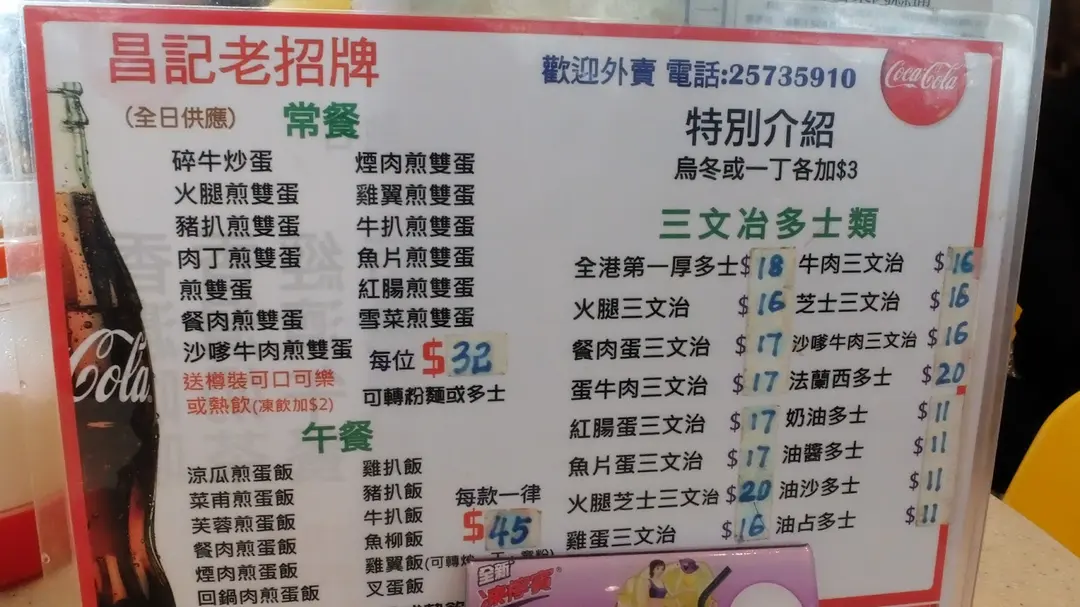 昌記老招牌
歡迎外賣 電話:25735910
Coca-Cola
(全日供應) 常餐
碎牛炒蛋 煙肉煎雙蛋
火腿煎雙蛋 雞翼煎雙蛋
豬扒煎雙蛋 牛扒煎雙蛋
肉丁煎雙蛋 魚片煎雙蛋
煎雙蛋 紅腸煎雙蛋
餐肉煎雙蛋 雪菜煎雙蛋
沙嗲牛肉煎雙蛋 每位 $32
送樽裝可口可樂
或熱飲(凍飲加$2) 可轉粉麵或多士
Cola
午餐
涼瓜煎蛋飯 雞扒飯
菜甫煎蛋飯 豬扒飯 每款一律
芙蓉煎蛋飯 牛扒飯 $45
餐肉煎蛋飯 魚柳飯
煙肉煎蛋飯 雞翼飯
回鍋肉煎蛋飯 叉蛋飯
特別介紹
烏冬或一丁各加$3
三文冶多士類
全港第一厚多士 $18 牛肉三文冶 $16
火腿三文冶 $16 芝士三文冶 $16
餐肉蛋三文冶 $17 沙嗲牛肉三文冶 $16
蛋牛肉三文冶 $17 法蘭西多士 $20
紅腸蛋三文冶 $17 奶油多士 $11
魚片蛋三文冶 $17 油醬多士 $11
火腿芝士三文冶 $20 油沙多士 $11
雞蛋三文冶 $16 油占多士 $11
全新